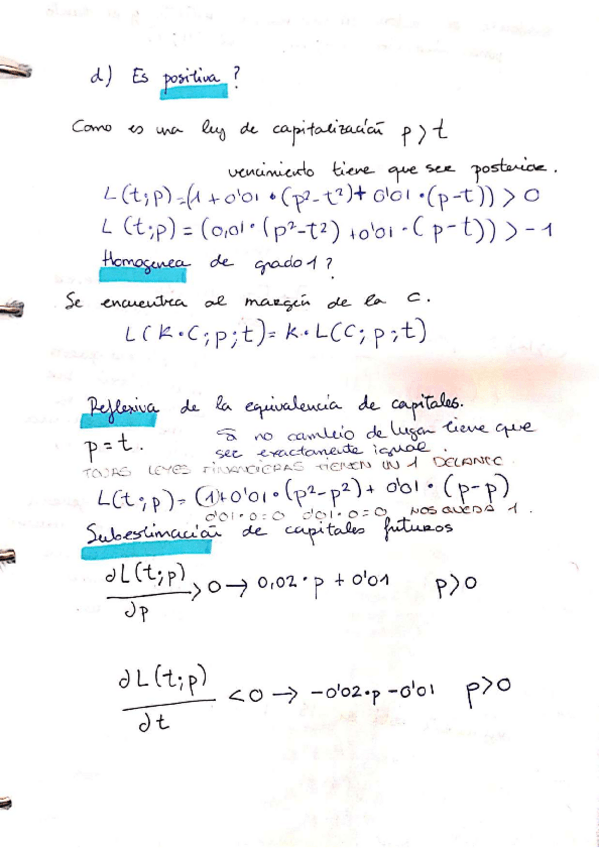 d) Es positiva?
Como es una ley de capitalización p>t
vencimiento tiene que ser posterior.
L(t;p)=(1+0'01·(p²-t²)+0'01·(p-t))>0
L(t;p)=(0,01·(p²-t²)+0'01·(p-t))>-1
Homogenea de grado 1?
Se encuentra al margen de la C.
L(K·C;p;t)=K·L(C;p;t)
Reflexiva de la equivalencia de capitales.
p=t. Si no cambio de lugar tiene que
ser exactamente igual.
TODAS LEYES FINANCIERAS TIENEN UN 1 DELANTE
L(t;p)=(1)+0'01·(p²-p²)+0'01·(p-p)
0'01·0=0 0'01·0=0 NOS QUEDA 1.
Subestimación de capitales futuros
∂L(t;p)/∂p >0 → 0,02·p+0'01 p>0
∂L(t;p)/∂t <0 → -0'02·p-0'01 p>0